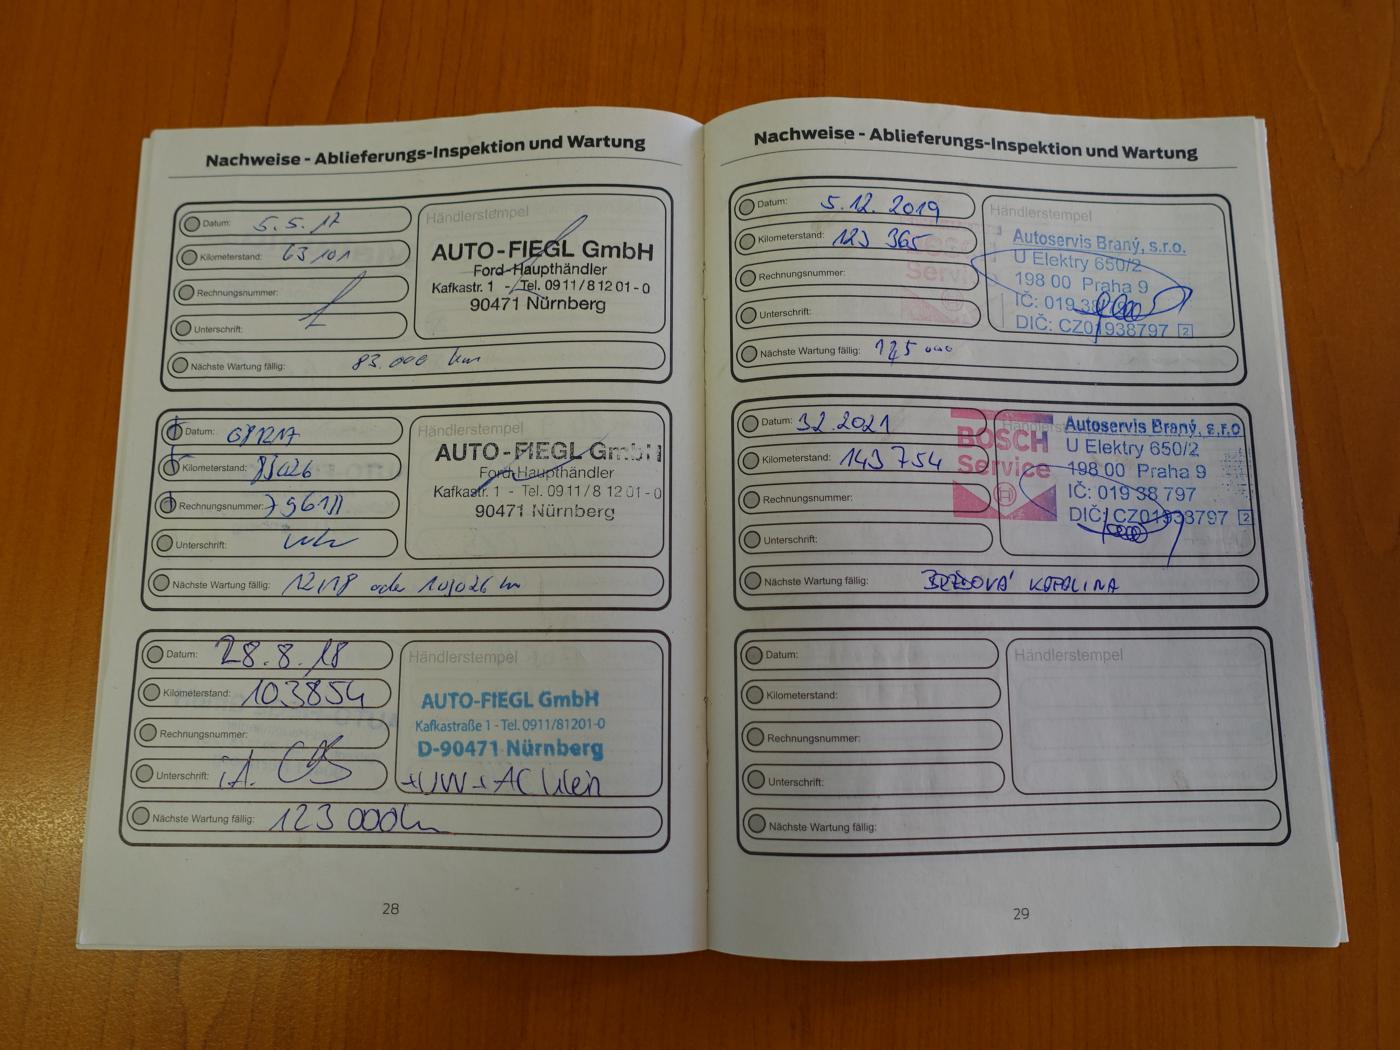 Nachweise - Ablieferungs-Inspektion und Wartung
Datum: 5.5.17
Kilometerstand: 63101
Rechnungsnummer:
Unterschrift:
Nächste Wartung fällig: 83.000 km
Händlerstempel
AUTO-FIEGL GmbH
Ford-Haupthändler
Kafkastr. 1 - Tel. 0911/8 12 01-0
90471 Nürnberg
Datum:
Kilometerstand: 83026
Rechnungsnummer:
Unterschrift:
Nächste Wartung fällig: 12/18 oder 103026 km
Händlerstempel
AUTO-FIEGL GmbH
Ford-Haupthändler
Kafkastr. 1 - Tel. 0911/8 12 01-0
90471 Nürnberg
Datum: 28.8.18
Kilometerstand: 103854
Rechnungsnummer:
Unterschrift: i.A.
Nächste Wartung fällig: 123 000 km
Händlerstempel
AUTO-FIEGL GmbH
Kafkastraße 1 - Tel. 0911/81201-0
D-90471 Nürnberg
28
Nachweise - Ablieferungs-Inspektion und Wartung
Datum: 5.12.2019
Kilometerstand: 123 365
Rechnungsnummer:
Unterschrift:
Nächste Wartung fällig:
Händlerstempel
Autoservis Braný, s.r.o.
U Elektry 650/2
198 00 Praha 9
IČ: 019 38
DIČ: CZ01938797 2
Datum: 3.2.2021
Kilometerstand: 143 754
Rechnungsnummer:
Unterschrift:
Nächste Wartung fällig: KATALINA
BOSCH
Service
Autoservis Braný, s.r.o
U Elektry 650/2
198 00 Praha 9
IČ: 019 38 797
DIČ: CZ01938797 2
Datum:
Kilometerstand:
Rechnungsnummer:
Unterschrift:
Nächste Wartung fällig:
Händlerstempel
29